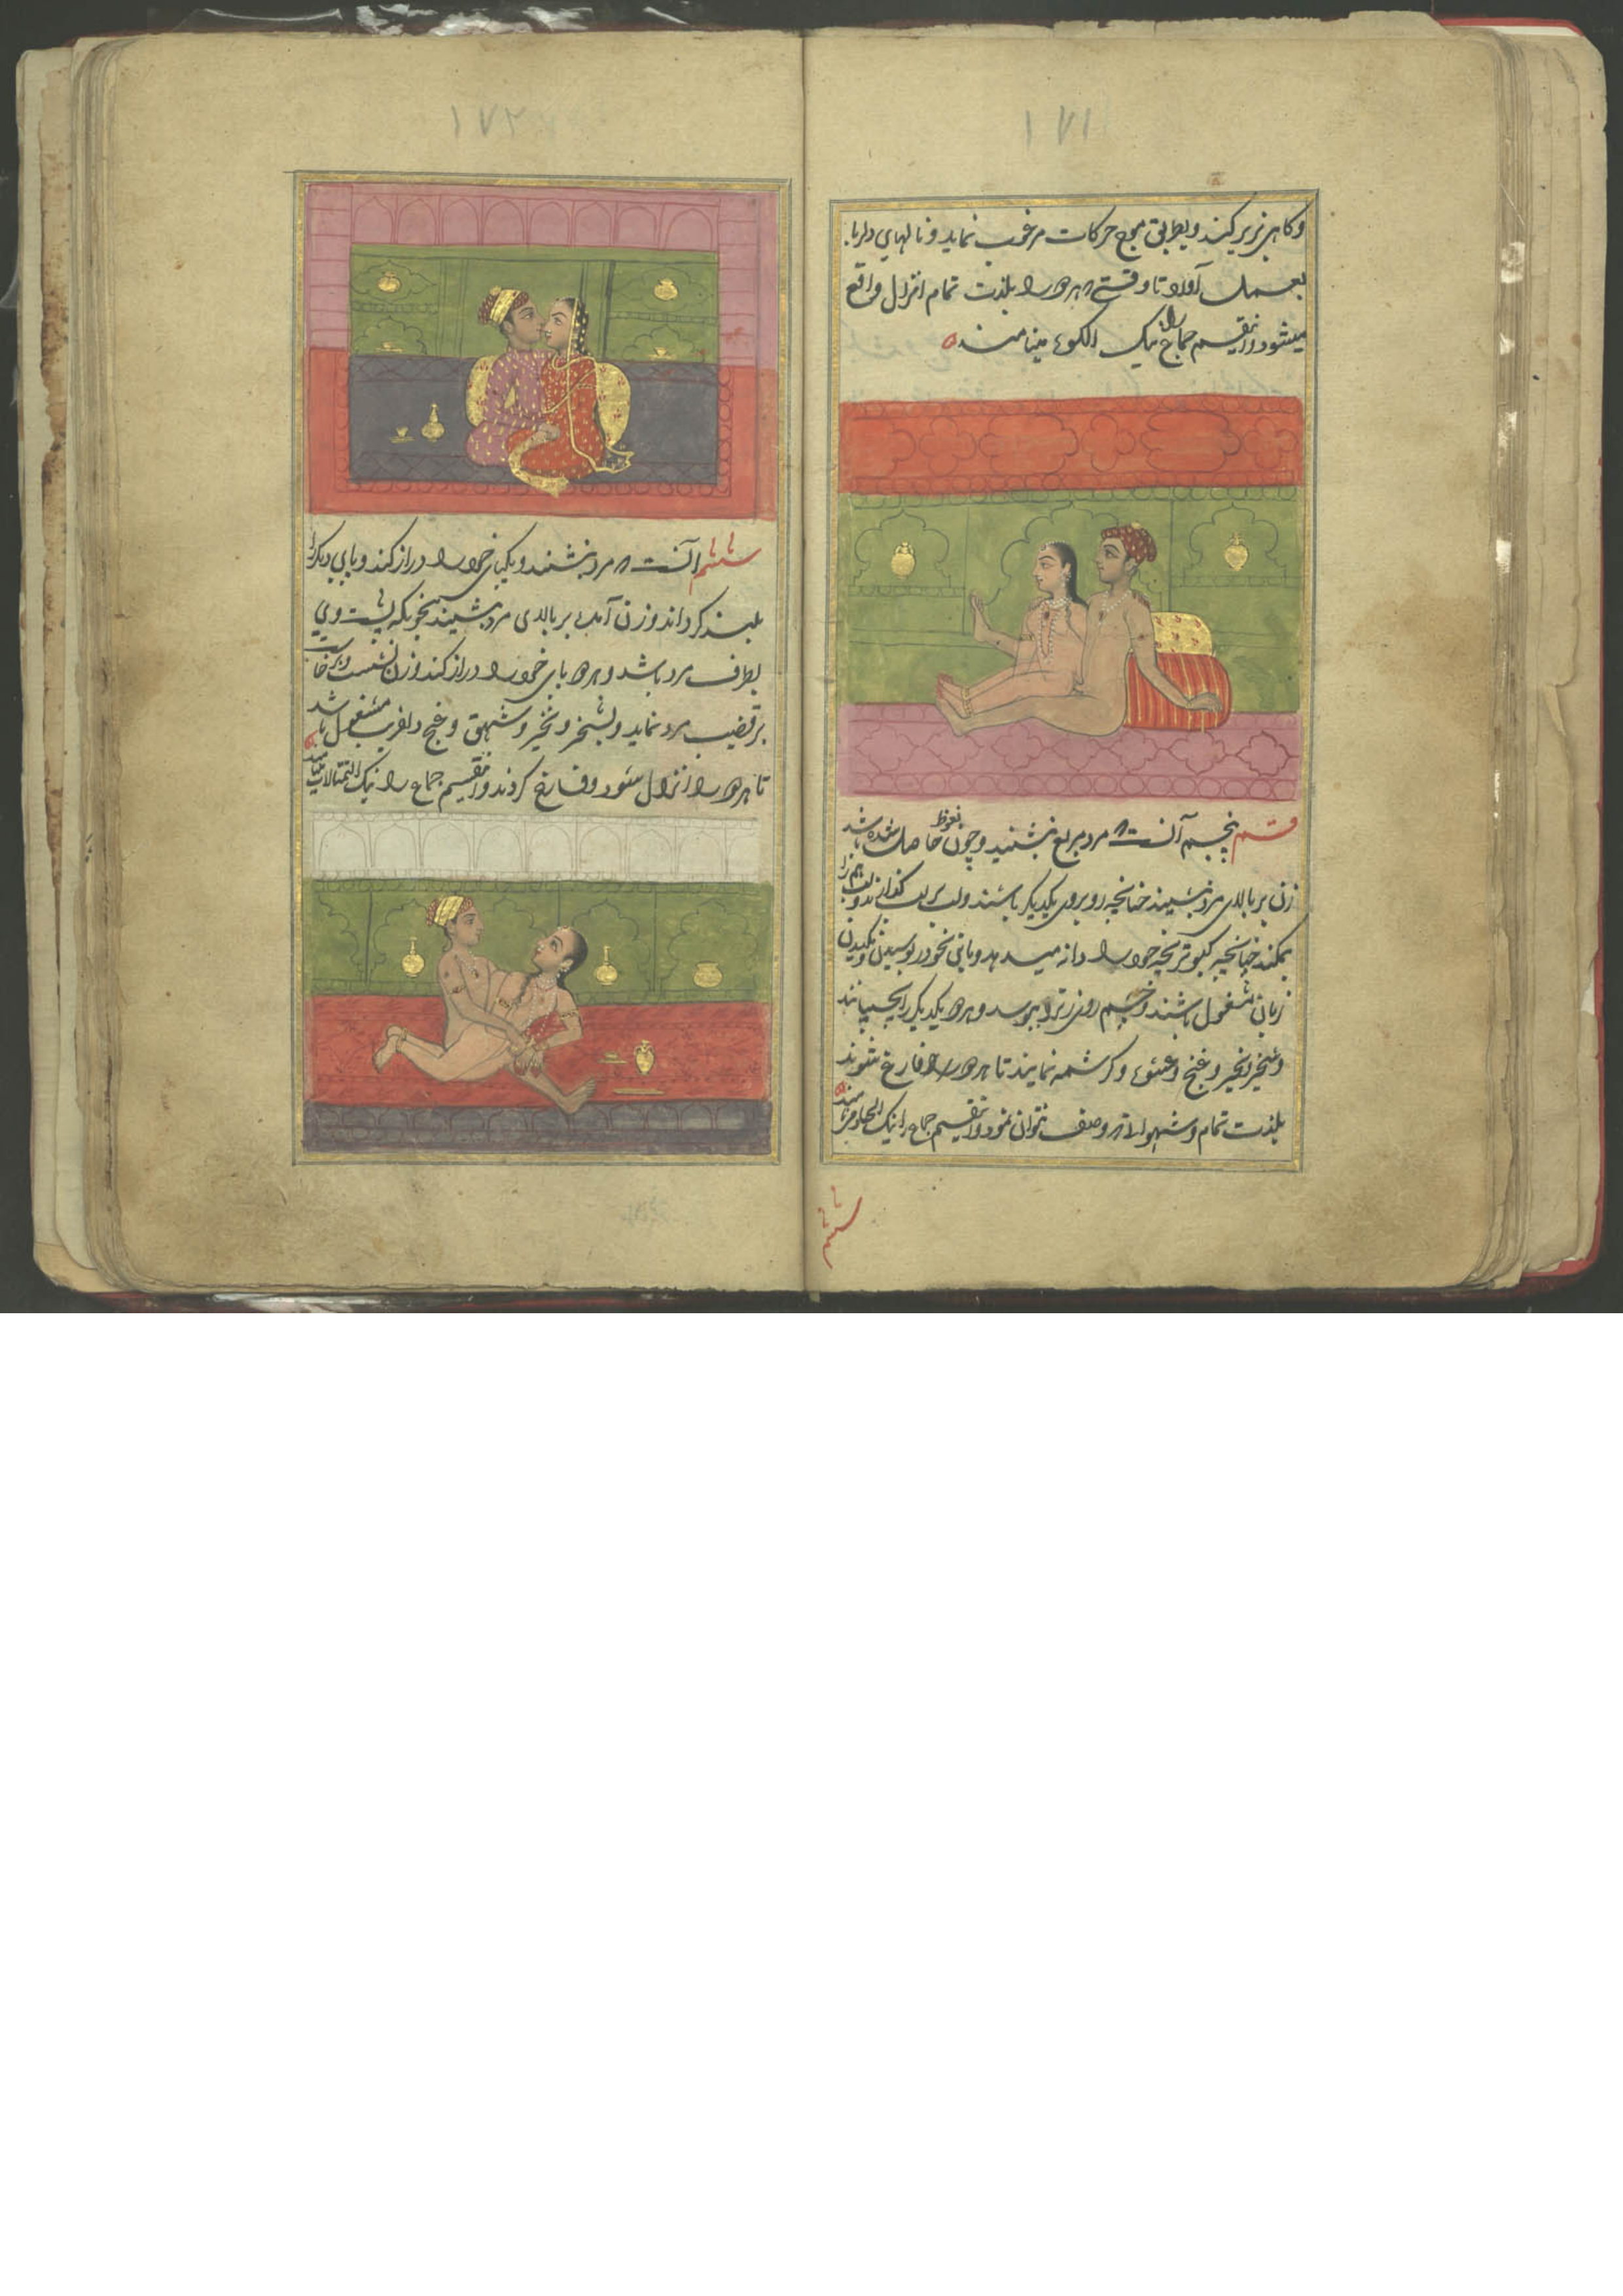 ۱۷۱
وکاهی زیر کند وبطریق موج حرکات مرغوب نماید و نالهای دلربا
بعمل آورد تا وقتی که هر دو را بلذت تمام انزال واقع
میشود و اینقسم جماع را نیک مینامند
قسم پنجم آنست که مرد مربع بنشیند و چون نعوظ حاصل شده باشد
زن بر بالای مرد بنشیند چنانچه روبروی یکدیگر باشند ولب بر لب
بمکند چنانچه کبوتر بچه خود را دانه میدهد و بوسیدن و مکیدن
زبان مشغول باشند و چشم و هر دو یکدیگر را بچسپانند
و غنج و کرشمه نمایند تا هر دو فارغ شوند
بلذت تمام وصف نتوان نمود و اینقسم جماع را نیک
ششم
۱۷۲
ششم آنست که مرد بنشیند و یکپای خود را دراز کند و پای دیکر را
بلند کرداند و زن آمده بر بالای مرد بنشیند بنحویکه پشت وی
بطرف مرد باشد و هر دو پای خود را دراز کند و زن نشست و برخاست
بر قضیب مرد نماید و نخیر و شهیق و غنج دلفریب مشغول باشد
تا هر دو را انزال شود و فارغ کردند و اینقسم جماع را نیک